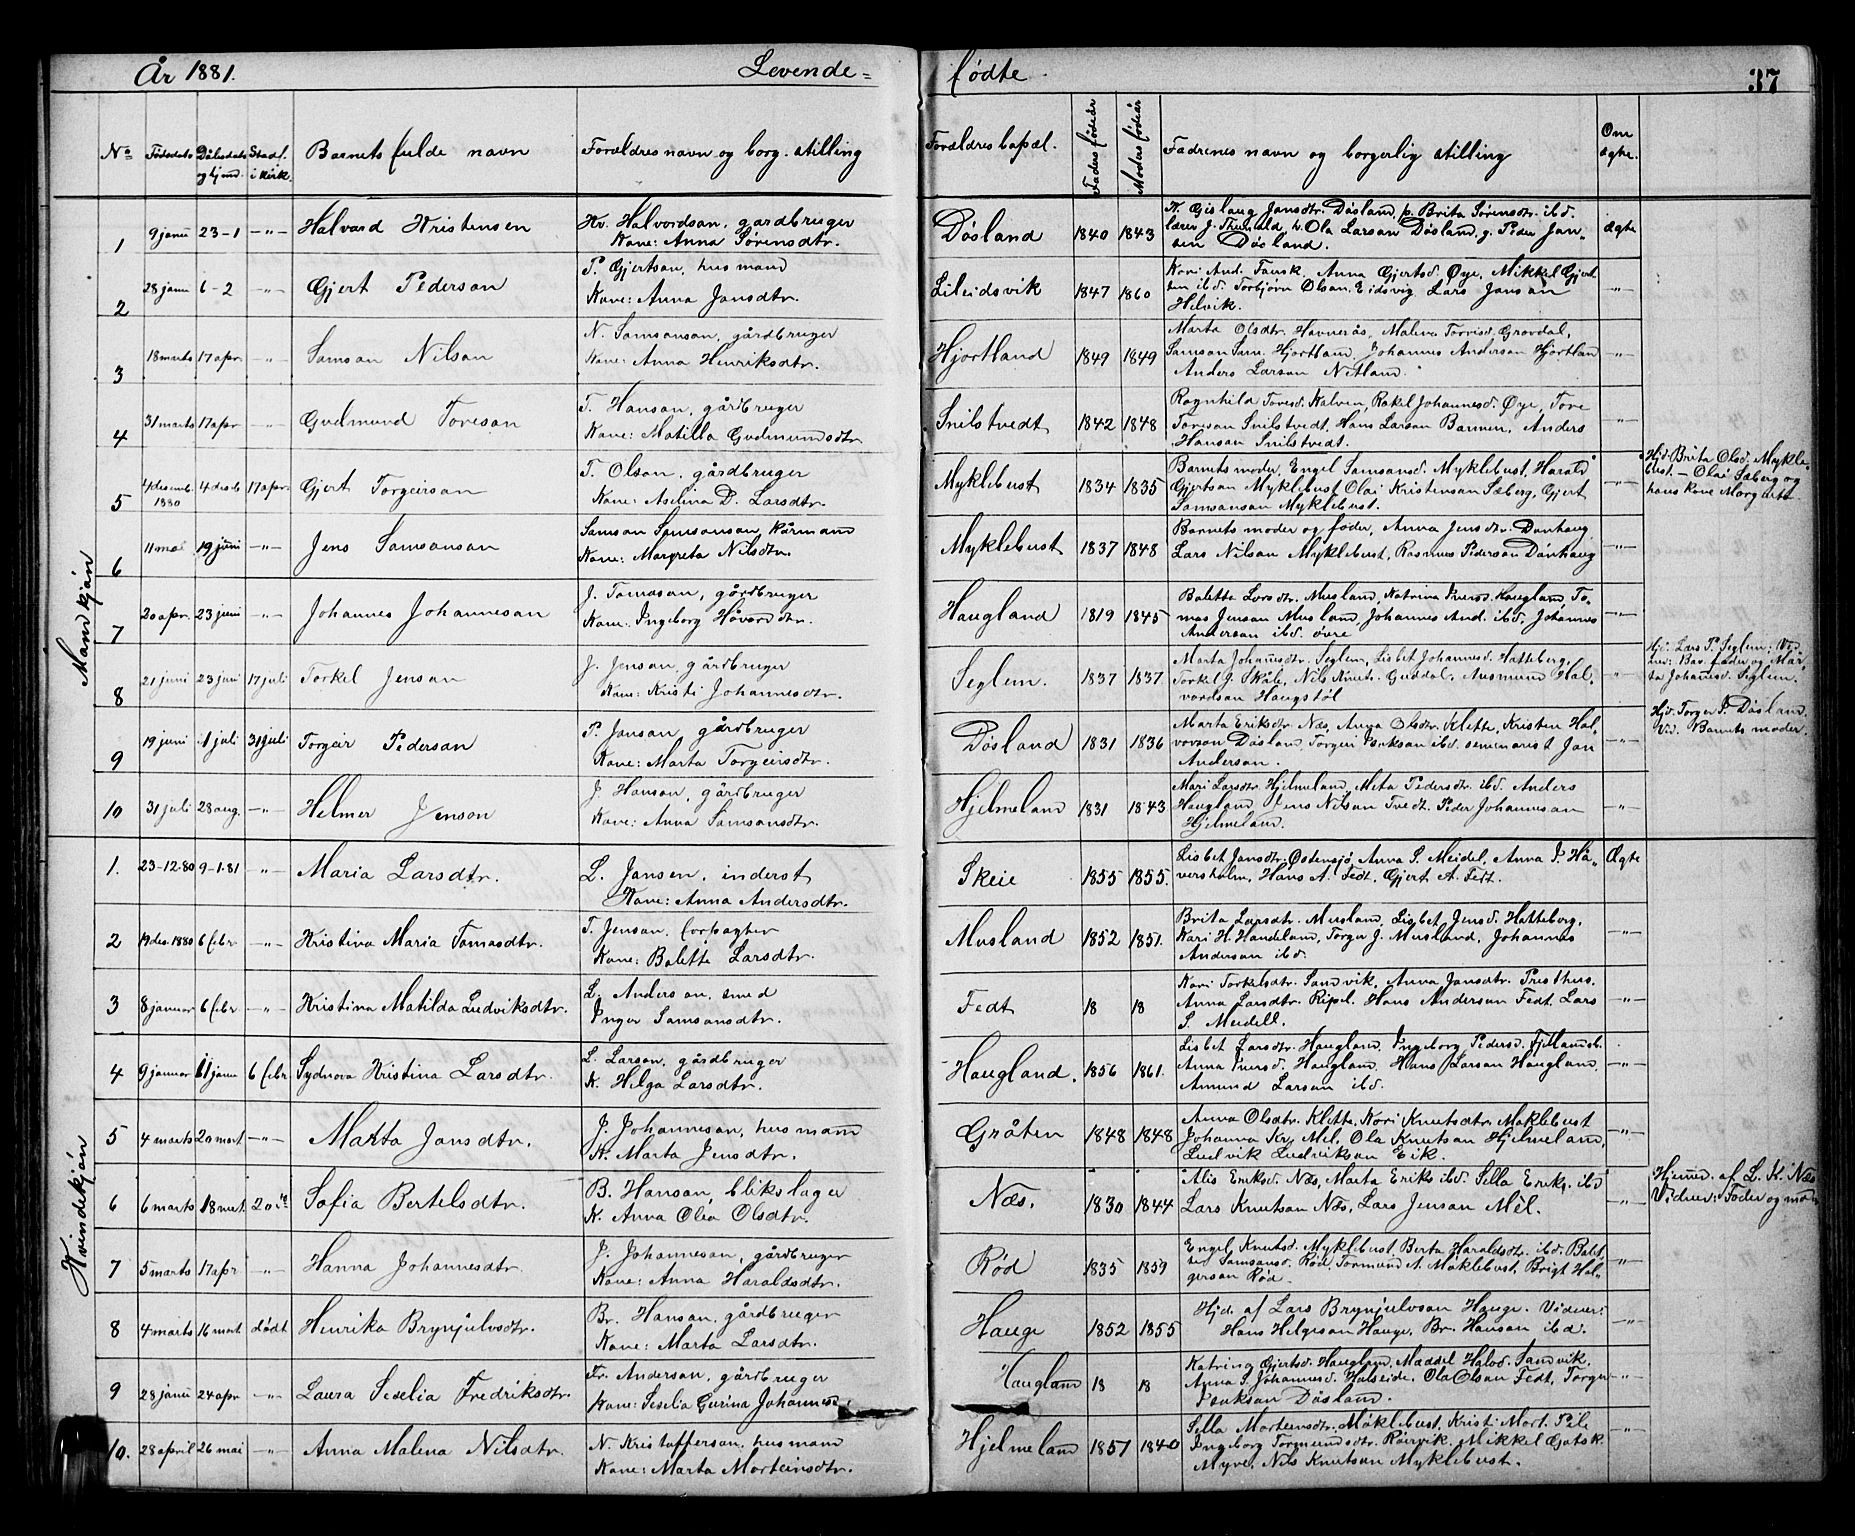 År 1881. Levende= fødte. 37
No Fødsdato Dåbsdato og hjemd. Stadf. i kirk. Barnets fulde navn Forældres navn og borg. stilling Forældres bopæl. Faders fødeår Moders fødeår Fadrenes navn og borgerlig stilling Om ægte.
Mandkjøn
1 9 janu 23-1 -"- Halvard Kristensen
Kr. Halvordson, gardbruger
Kone: Anna Sørensdtr.
Døsland 1840 1843
K. Gislaug Jansdtr. Døsland, p. Brita Sørensdtr. ibd.
lærer J. Ola Larson Døsland, g. Peder Jan-
sen Døsland.
ægte
2 28 janu 6-2 -"- Gjert Pederson
P. Gjertson, husmand
Kone: Anna Jansdtr.
Lileidsvik 1847 1860
Kari And. Tansk. Anna Gjertsd. Øye, Mikkel Gjert
sen ibd. Torbjørn Olson, Eidsvig Lars Janson
Helvik.
-"-
3 18 marts 17 apr. -"- Samson Nilson
N. Samsonson, gårdbruger
Kone: Anna Henriksdtr.
Hjortland 1849 1849
Marta Olsdtr. Havnerås, Malena Torisd. Grovdal,
Samson Sam. Hjortland, Johannes Anderson Hjortlan
Anders Larson Netland.
-"-
4 31 marts 17 apr -"- Gudmund Toreson
T. Hanson, gårdbruger
Kone: Matilla Gudmundsdtr.
Snilstvedt 1842 1848
Ragnhild Toresd. Kalven, Rakel Johannesd. Øye, Tore
Toreson Snilstvedt. Hans Larson Barmen, Anders
Hanson Snilstvedt.
-"-
5 4 desemb. 1880 4 desb 17 apr. Gjert Torgeirson
T. Olson, gårdbruger
Kone: Aselina D. Larsdtr.
Myklebust 1834 1835
Barnets moder, Engel Samsonsd. Myklebust, Harald
Gjertson Myklebust Olai Kristenson Sæberg, Gjert
Samsonson Myklebust.
-"-
Hjd. Brita Olsd. Mykle-
bust. - Olai Sæberg og
hans kone Margrete
6 11 mai 19 juni -"- Jens Samsonson
Samson Samsonson, kårmand
Kone: Margreta Nilsdtr.
Myklebust 1837 1848
Barnets moder og fader, Anna Jensdtr. Dønhaug
Lars Nilson Myklebust, Rasmus Pederson Dønhaug
-"-
7 20 apr. 23 juni -"- Johannes Johanneson
J. Tomason, gårdbruger
Kone: Ingeborg Håvardtr.
Haugland 1819 1845
Balette Larsdtr. Musland, Katrina Iversd. Haugland, To-
mas Jenson Musland, Johannes And. ibd. Johannes
Anderson ibd. øvre
-"-
8 21 juni 23 juni 17 juli Torkel Jenson
J. Jenson, gårdbruger
Kone: Kristi Johannsdtr.
Seglem. 1837 1837
Marta Johannesdtr. Seglem, Lisbet Johannesd. Hatteberg,
Torkel J. Skåle, Nils Knuts. Guddal, Aasmund Hal,
vordson Haugstøl
-"-
Hjd. Lars P. Seglem; Vid-
ner: Bar. fader og Mar-
ta Johannesd. Seglem.
9 19 juni 1 juli 31 juli Torgeir Pederson
P. Janson, gårdbruger
Kone: Marta Torgeirsdtr.
Døsland 1831 1836
Marta Eriksdtr. Næs, Anna Olsdtr. Klette, Kristen Hal
vorson Døsland, Torgeir Isakson ibd. seminarist Jan
Anderson.
-"-
Hjd. Torger P. Døsland.
Vid. Barnets moder.
10 31 juli 28 aug. -"- Helmer Jenson
J. Hanson, gårdbruger
Kone: Anna Samsonsdtr.
Hjelmeland 1831 1843
Mari Larsdtr. Hjelmeland, Meta Pedersdtr. ibd. Anders
Haugland, Jens Nilson Tvedt. Peder Johanneson
Hjelmeland.
-"-
Kvindekjøn
1. 23-12-80 9-1-81 -"- Maria Larsdtr.
L. Jansen, inderst
Kone: Anna Andersdtr.
Skeie 1855 1855.
Lisbet Jansdtr. Østensjø, Anna S. Meidel, Anna J. Hå-
versholm, Hans A. Fedt, Gjert A. Fedt.
Ægte
2 19 des. 1880 6 febr -"- Kristina Maria Tomasdtr.
T. Jenson, forpagter
Kone: Balette Larsdtr.
Musland 1852 1851.
Brita Larsdtr. Musland, Lisbet Jensd. Hatteberg,
Kari H. Handeland, Torger J. Musland, Johannes
Anderson ibd.
-"-
3 8 januar 6 febr -"- Kristina Matilda Ludviksdtr.
L. Anderson, smed
Inger Samsonsdtr.
Fedt 18 18
Kari Torkelsdtr. Sandvik, Anna Jansdtr. Presthus.
Anna Larsdtr. Ripel. Hans Anderson Fedt. Lars
S. Meidell.
-"-
4 9 januar 11 janu 6 febr Sydnova Kristina Larsdtr.
L. Larson, gårdbruger
K. Helga Larsdtr.
Haugland. 1856 1861.
Lisbet Larsdtr. Haugland. Ingeborg Pedersd. Fjellandsb.
Anna Iversd. Haugland. Hans Larson Haugland.
Amund Larson ibd.
-"-
5 4 marts 20 mart -"- Marta Jansdtr.
J. Johanneson, husmand
K. Marta Jensdtr.
Gråten 1848 1848
Anna Olsdtr. Klette, Kari Knutsdtr. Møklebust
Johanna Kr. Mel, Ola Knutson Hjelmeland,
Ludvik Ludvikson Eik.
-"-
6 6 marts 18 mart. 20 Sofia Bertelsdtr.
B. Hanson, blikslager
K. Anna Olea Olsdtr.
Næs. 1830 1844
Alis Eriksd. Næs, Marta Eriks ibd. Sella Eriks. ibd
Lars Knutson Næs, Lars Jenson Mel.
-"-
Hjemd. af L. K. Næs
Vidner: Fader og mor
7 5 marts 17 apr -"- Hanna Johannesdtr.
J. Johanneson, gårdbruger
Kone: Anna Haraldsdtr.
Rød 1835 1859
Engel Knutsd. Myklebust, Berta Haraldsdtr. ibd. Balet-
te Samsonsd. Rød, Tormund A. Møklebust, Brigt Hal-
gerson Rød.
-"-
8 4 marts 16 mart dødt Henrika Brynjulvsdtr.
Br. Hanson, gårdbruger
Kone: Marta Larsdtr.
Hauge 1852 1855
Hjd. af Lars Brynjulvson Hauge. Vidner:
Hans Helgeson Hauge, Br. Hanson ibd.
-"-
9 28 janu 24 apr -"- Laura Seselia Fredriksdtr.
Fr. Anderson, gårdbruger
Kone: Seselia Gurina Johannesd.
Haugland 18 18
Katrina Gjertsd. Haugland, Maddel Halvd. Sandvik.
Anna S. Johannesd. Halseide, Ola Olson Fedt, Torger
Isakson Døsland.
-"-
10. 28 april 26 mai -"- Anna Malena Nilsdtr.
N. Kristofferson, husmand
Kone: Marta Morteinsdtr.
Hjelmeland 1857 1840
Sella Morteinsdtr. Møklebust, Kristi Mort. Pile
Ingeborg Tormundsdtr. Røirvik. Mikkel Gotsk.
Myre, Nils Knutson Myklebust.
-"-